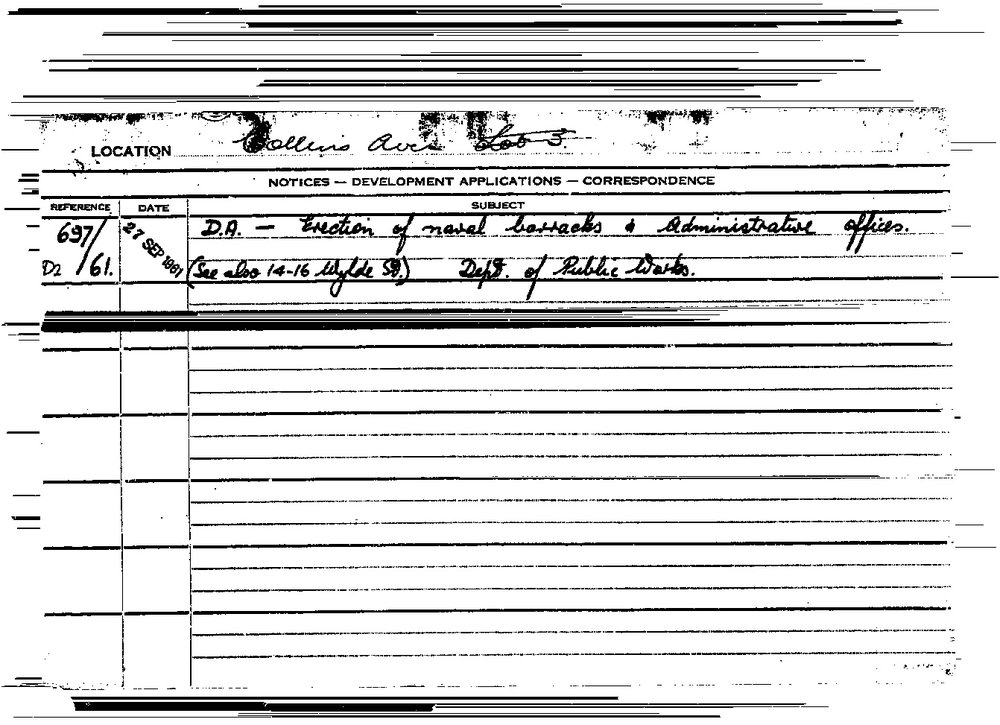 LOCATION Collins Ave Lot 3.
NOTICES — DEVELOPMENT APPLICATIONS — CORRESPONDENCE
REFERENCE DATE SUBJECT
697/ 27 SEP 1961 D.A. — Erection of naval barracks & Administrative offices.
D2 /61. (See also 14-16 Wylde St.) Dept. of Public Works.